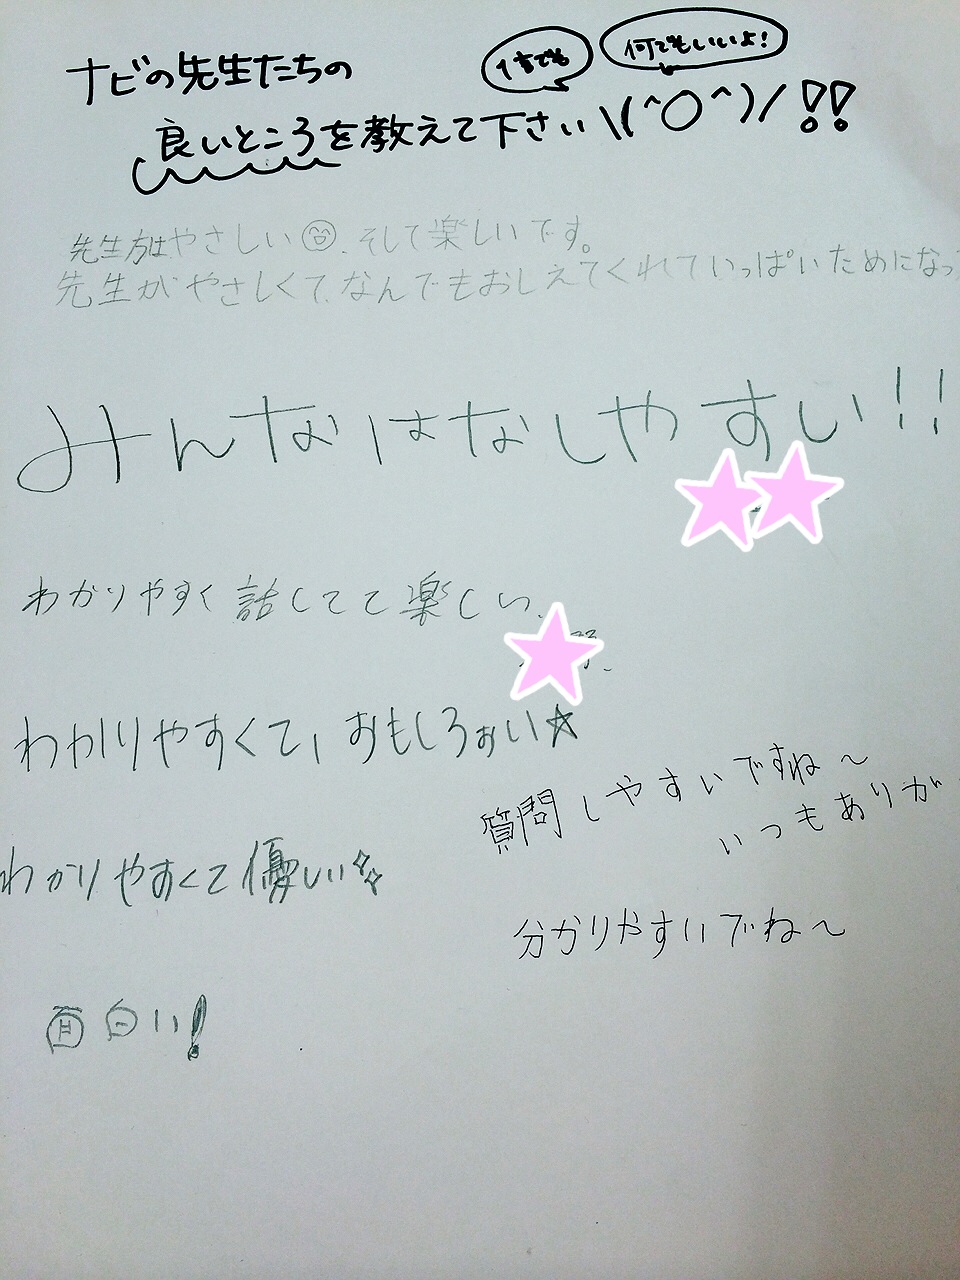 1言でも
何でもいいよ!
ナビの先生たちの
良いところを教えて下さい\(^O^)/!!
先生方はやさしい そして楽しいです。
先生がやさしくて、なんでもおしえてくれていっぱいためになっ
みんなはなしやすい!!
わかりやすく話してて楽しい、
わかりやすくて、おもしろぉい☆
質問しやすいですね〜
いつもありが
わかりやすくて優しい
分かりやすいでね〜
面白い!